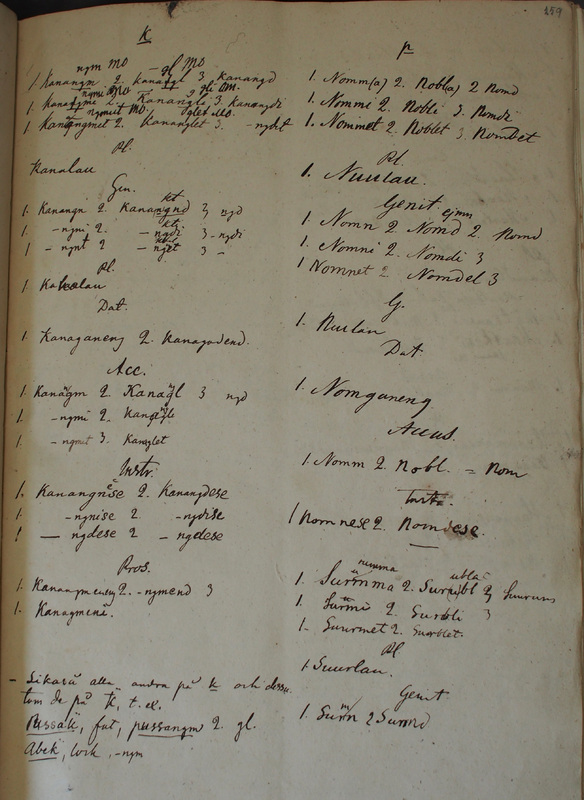 159
K
ngm MO gl MO
1 Kanangm 2. kanangl 3 Kanangd
ngmi MO gli M.
1 Kanangmi 2. Kanangli 3 Kanangdi
ngmet MO glet MO.
1 Kanangmet 2. Kananglet 3. - ngdet
Pl.
Kanalau
Gen.
kt
1 Kanangn 2. Kanangnd 3 ngd
1 - ngmi 2. - ngdi 3 - ngdi
1 - ngnt 2 - ngdet 3 -
Pl.
1 Kakalau
Dat.
1. Kanaganeng 2. Kanagadend.
Acc.
1 Kanagm 2. Kanagl 3 ngd
1. - ngmi 2. Kanagli
1. - ngmet 3. Kananglet
Instr.
1. Kanangnese 2. Kanangdese
1. - ngnise 2 - ngdise
1 — ngdese 2 - ngdese
Pros.
1. Kanagmeneng 2. - ngmend 3
1. Kanagmenä.
- Likaså alla andra på k och dessu-
tom de på k, t. ex.
Pussak, fat, pussangm 2. gl.
Abek, lock, - ngm
p
1. Nomm(a) 2. Nobl(a) 2 Nomd
1. Nommi 2. Nobli 3. Nomdi
1. Nommet 2. Noblet 3. Nombet
Pl.
1. Nuulau.
Genit
1. Nomn 2. Nomd 2. Nomd
1. Nomni 2. Nomdi 3
1 Nomnet 2 Nomdel 3
G.
1. Nuulau
Dat
1. Nomganeng
Accus.
1. Nomm 2. Nobl. = Nom
Instr.
1 Nomnese 2. Nomdese.
numma ubla
1. Surmma 2. Surubl 3 Suurum
1. Surmi 2 Surbli 3
1- Suurmet 2. Surblet.
Pl
1 Suurlau.
Genit
1. Surn 2 Surmd